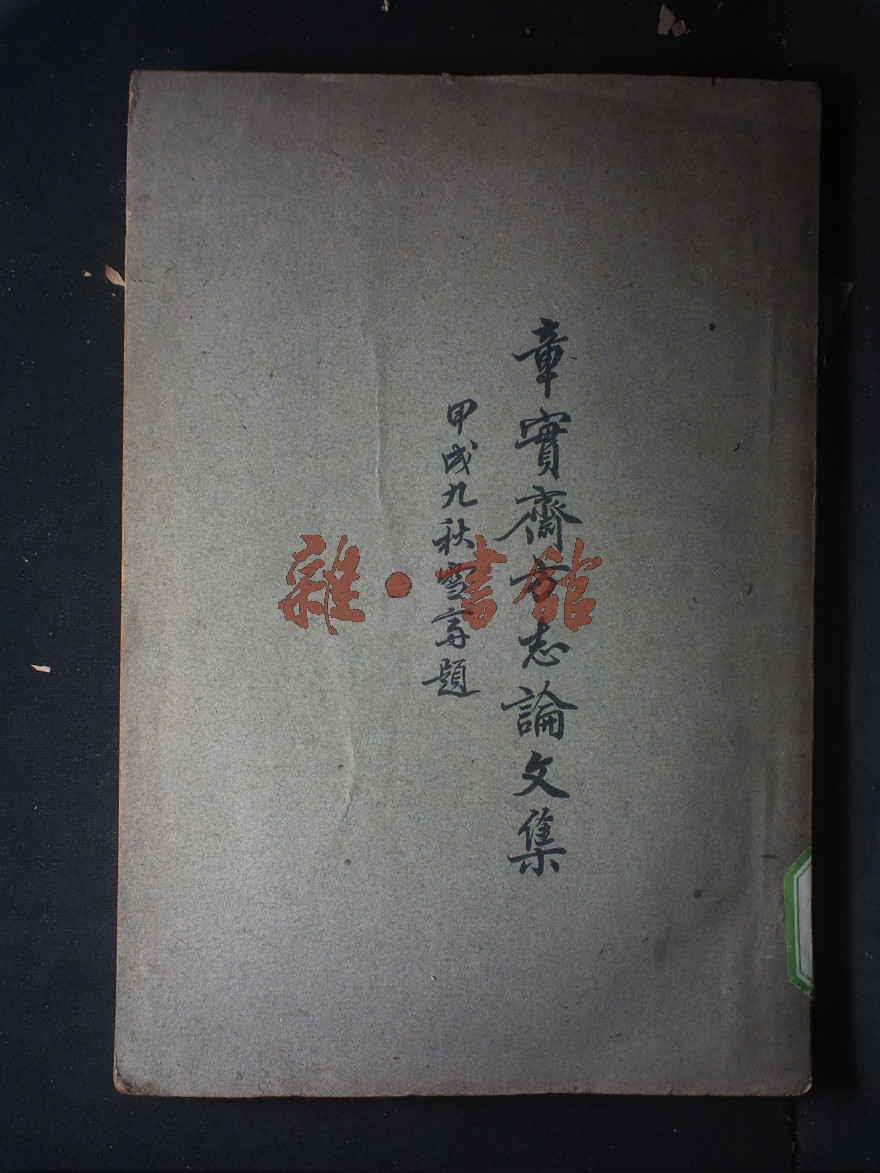 章實齋方志論文集
甲戌九秋雪齋題
雜·書館